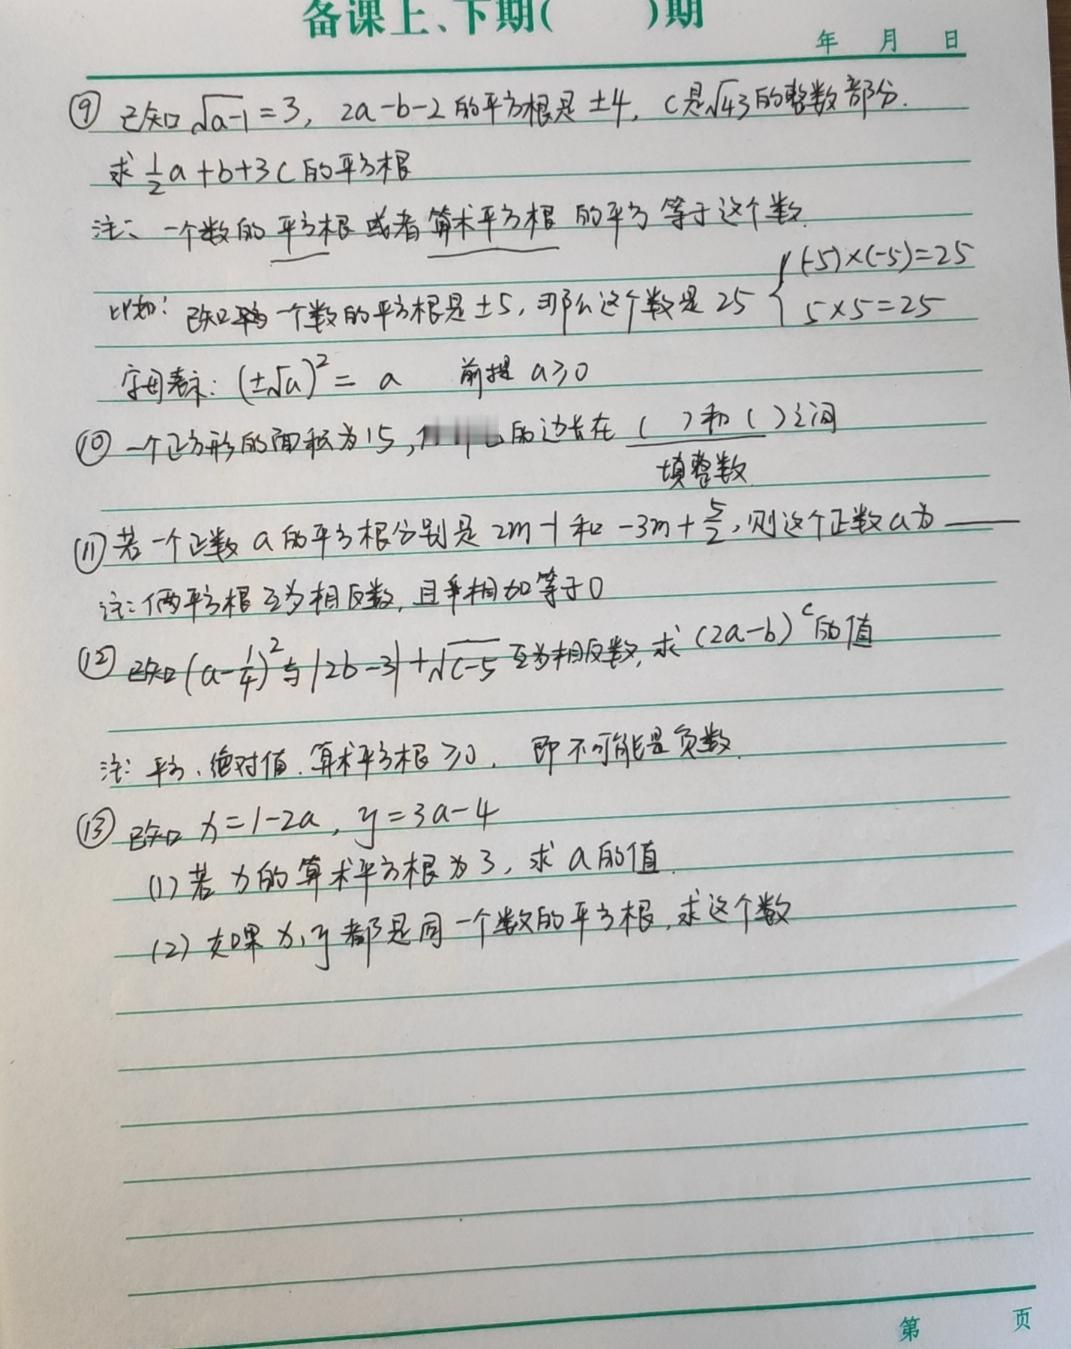 备课上、下期( )期
年 月 日
⑨ 已知√a-1=3, 2a-b-2的平方根是±4, C是√43的整数部分.
求½a+b+3c的平方根
注: 一个数的平方根或者算术平方根的平方等于这个数.
比如: 已知一个数的平方根是±5, 那么这个数是25 { (-5)×(-5)=25
5×5=25
字母表示: (±√a)²=a 前提 a≥0
⑩ 一个正方形的面积为15, 的边长在( )和( )之间
填整数
⑪ 若一个正数a的平方根分别是2m-1和-3m+5/2, 则这个正数a为____
注: 俩平方根互为相反数, 且相加等于0
⑫ 已知(a-1/4)²与|2b-3|+√c-5互为相反数, 求(2a-b)^c的值
注: 平方、绝对值、算术平方根≥0, 即不可能是负数.
⑬ 已知x=1-2a, y=3a-4
(1) 若x的算术平方根为3, 求a的值.
(2) 如果x,y都是同一个数的平方根, 求这个数
第 页